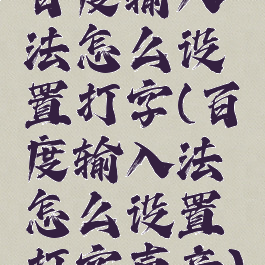 百度输入
法怎么设
置打字(百
度输入法
怎么设置
打字声音)